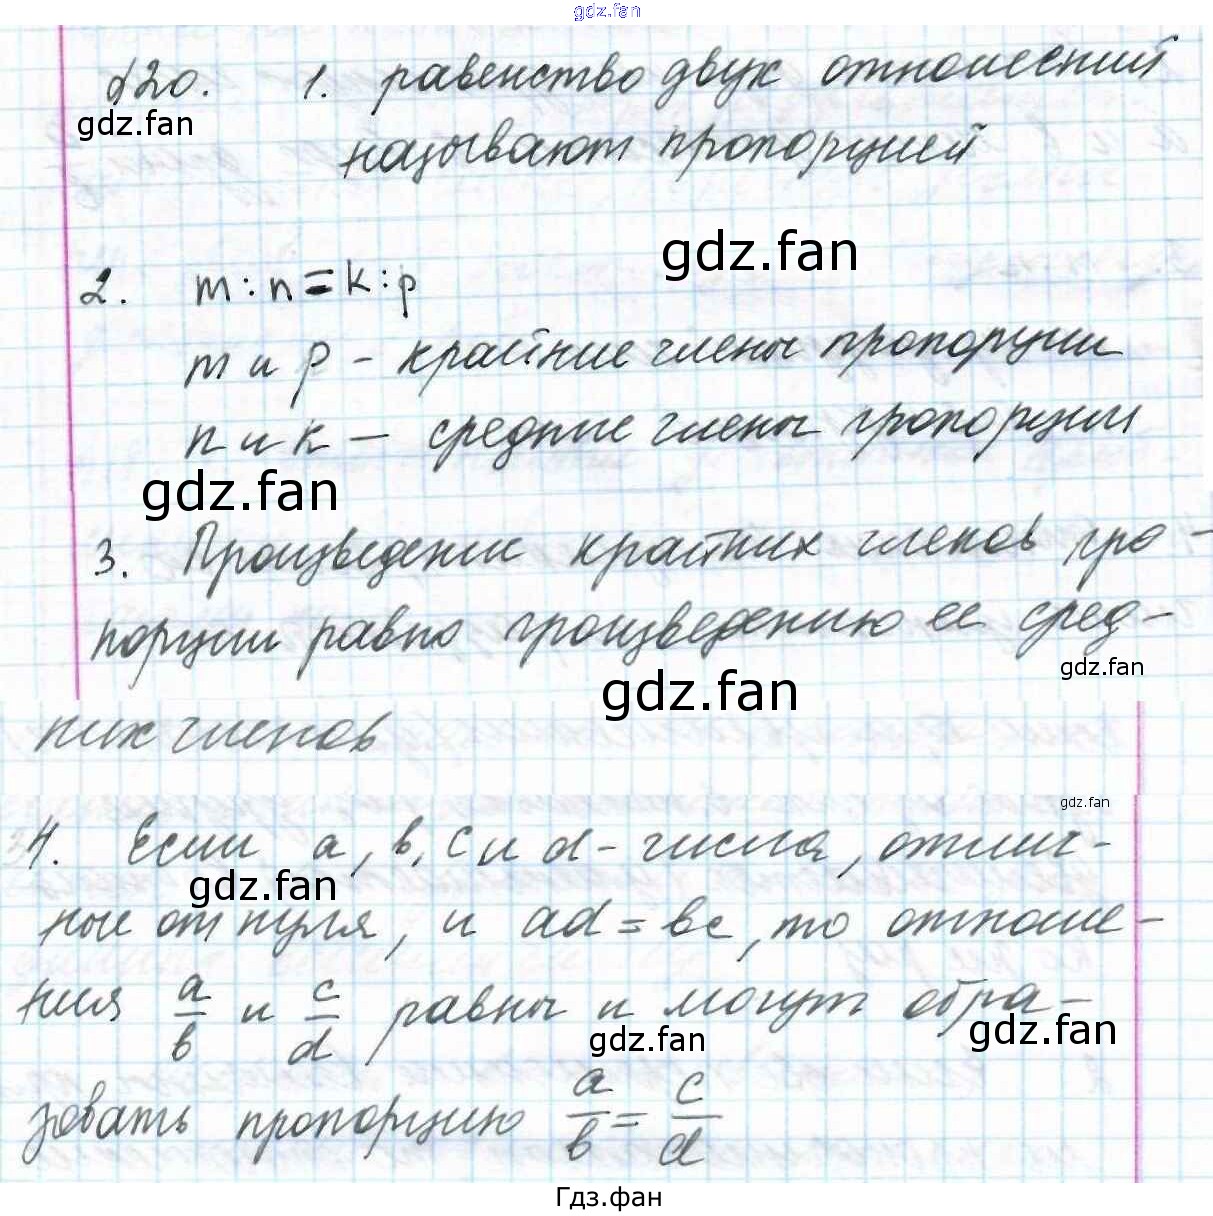 gdz.fan
§20. 1. равенство двух отношений
gdz.fan
называют пропорцией
gdz.fan
2. m:n=k:p
m и p - крайние члены пропорции
n и k - средние члены пропорции
gdz.fan
3. Произведение крайних членов про-
порции равно произведению ее сред-
gdz.fan
gdz.fan
них членов
gdz.fan
4. Если a, b, c и d - числа, отлич-
gdz.fan
ные от нуля, и ad = bc, то отноше-
ния a/b и c/d равны и могут обра-
gdz.fan
gdz.fan
зовать пропорцию a/b = c/d
Гдз.фан